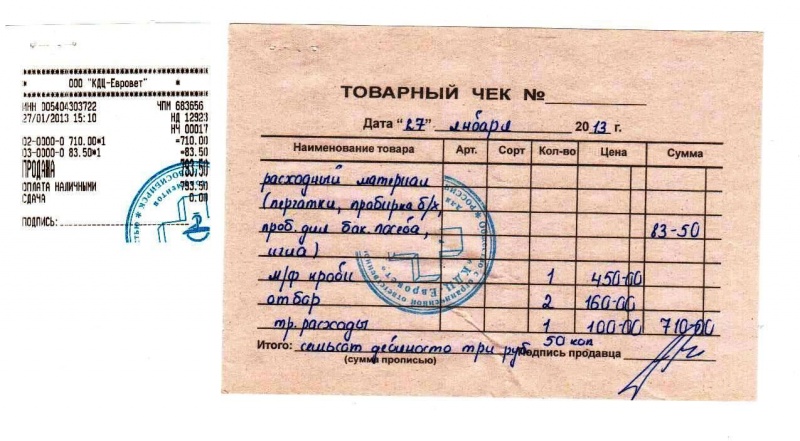 ООО "КДЦ-Евровет"
ИНН 005404303722 ЧПМ 683656
27/01/2013 15:10 НД 12923
НЧ 00017
02-0000-0 710.00*1 =710.00
03-0000-0 83.50*1 =83.50
ПРОДАЖА 793.50
ОПЛАТА НАЛИЧНЫМИ 793.50
СДАЧА 0.00
ПОДПИСЬ:
ТОВАРНЫЙ ЧЕК №
Дата "27" января 2013 г.
Наименование товара Арт. Сорт Кол-во Цена Сумма
расходный материал
(перчатки, пробирка б/х,
проб. для бак. посева, 83-50
игла)
м/ф крови 1 450-00
отбор 2 160-00
тр. расходы 1 100-00 710-00
Итого: семьсот девяносто три руб 50 коп подпись продавца
(сумма прописью)
"КДЦ Евровет"